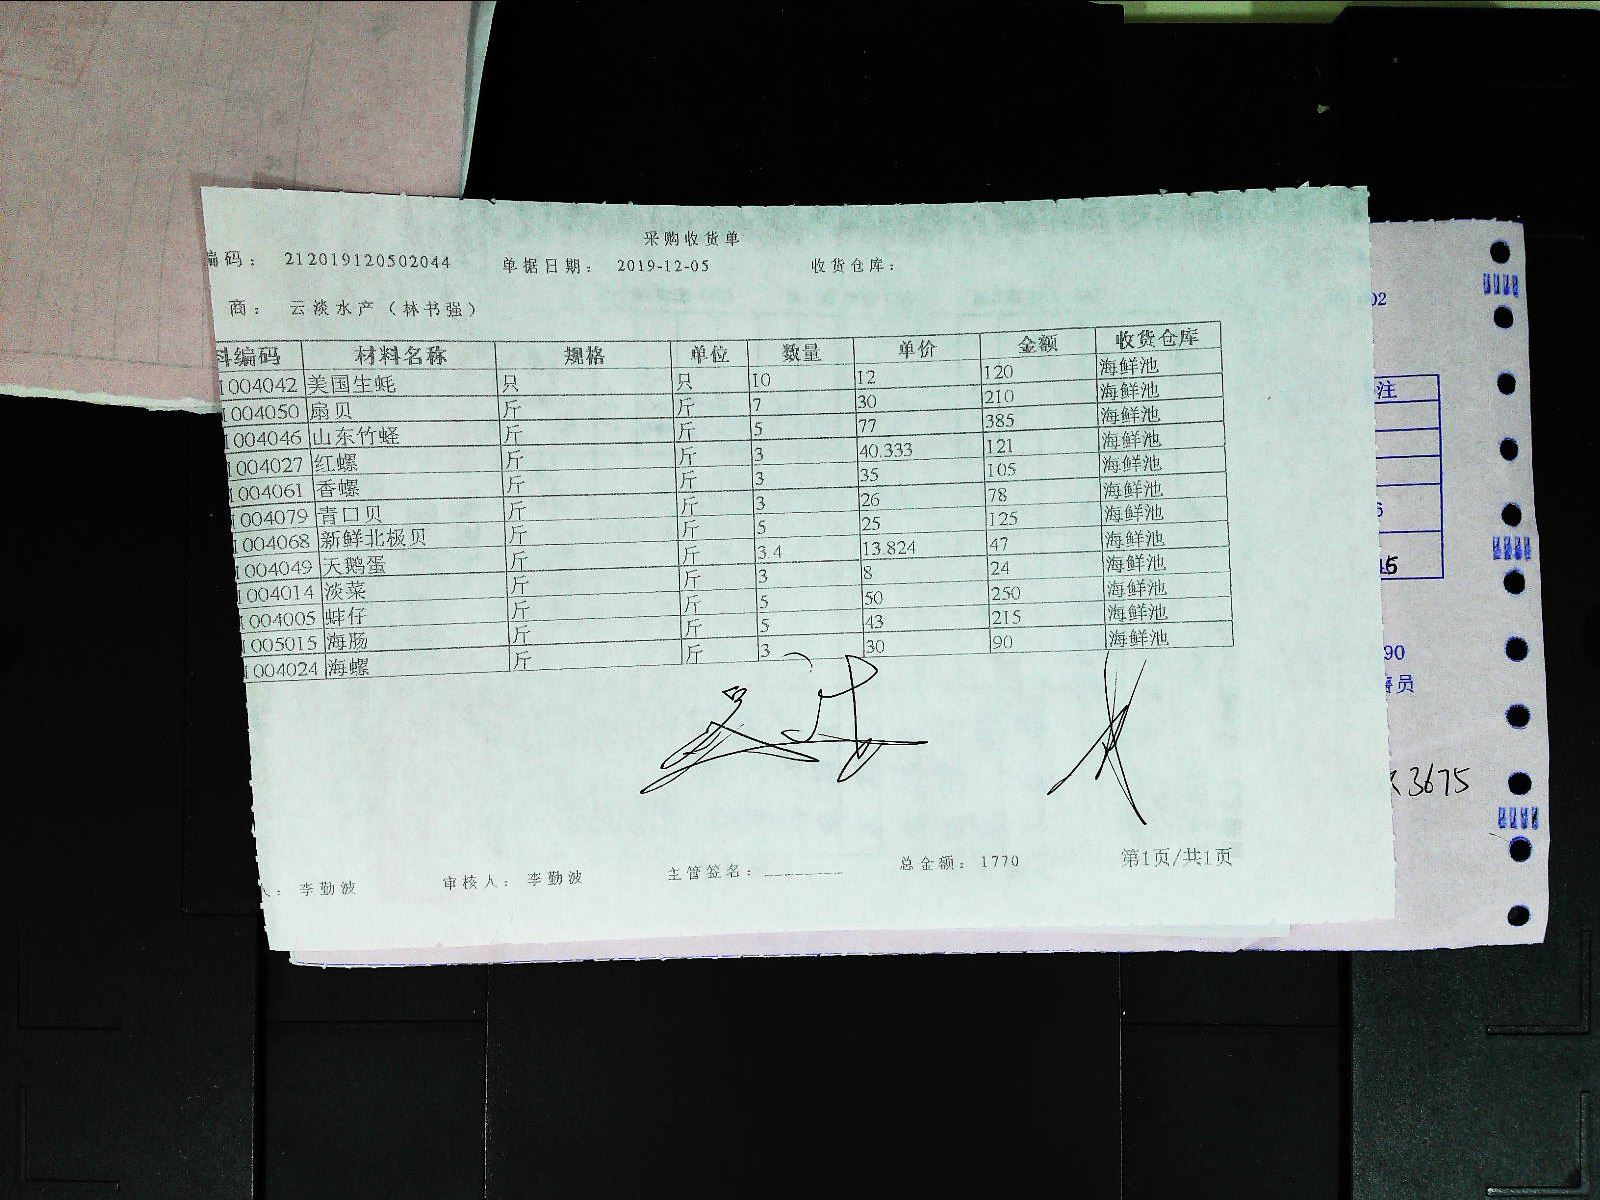 采购收货单
编码： 212019120502044 单据日期： 2019-12-05 收货仓库：
商： 云淡水产（林书强）
料编码 材料名称 规格 单位 数量 单价 金额 收货仓库
1004042 美国生蚝 只 只 10 12 120 海鲜池
1004050 扇贝 斤 斤 7 30 210 海鲜池
1004046 山东竹蛏 斤 斤 5 77 385 海鲜池
1004027 红螺 斤 斤 3 40.333 121 海鲜池
1004061 香螺 斤 斤 3 35 105 海鲜池
1004079 青口贝 斤 斤 3 26 78 海鲜池
1004068 新鲜北极贝 斤 斤 5 25 125 海鲜池
1004049 天鹅蛋 斤 斤 3.4 13.824 47 海鲜池
1004014 淡菜 斤 斤 3 8 24 海鲜池
1004005 蚌仔 斤 斤 5 50 250 海鲜池
1005015 海肠 斤 斤 5 43 215 海鲜池
1004024 海螺 斤 斤 3 30 90 海鲜池
人： 李勤波 审核人： 李勤波 主管签名： 总金额： 1770 第1页/共1页
02
注
6
45
90
售员
3675